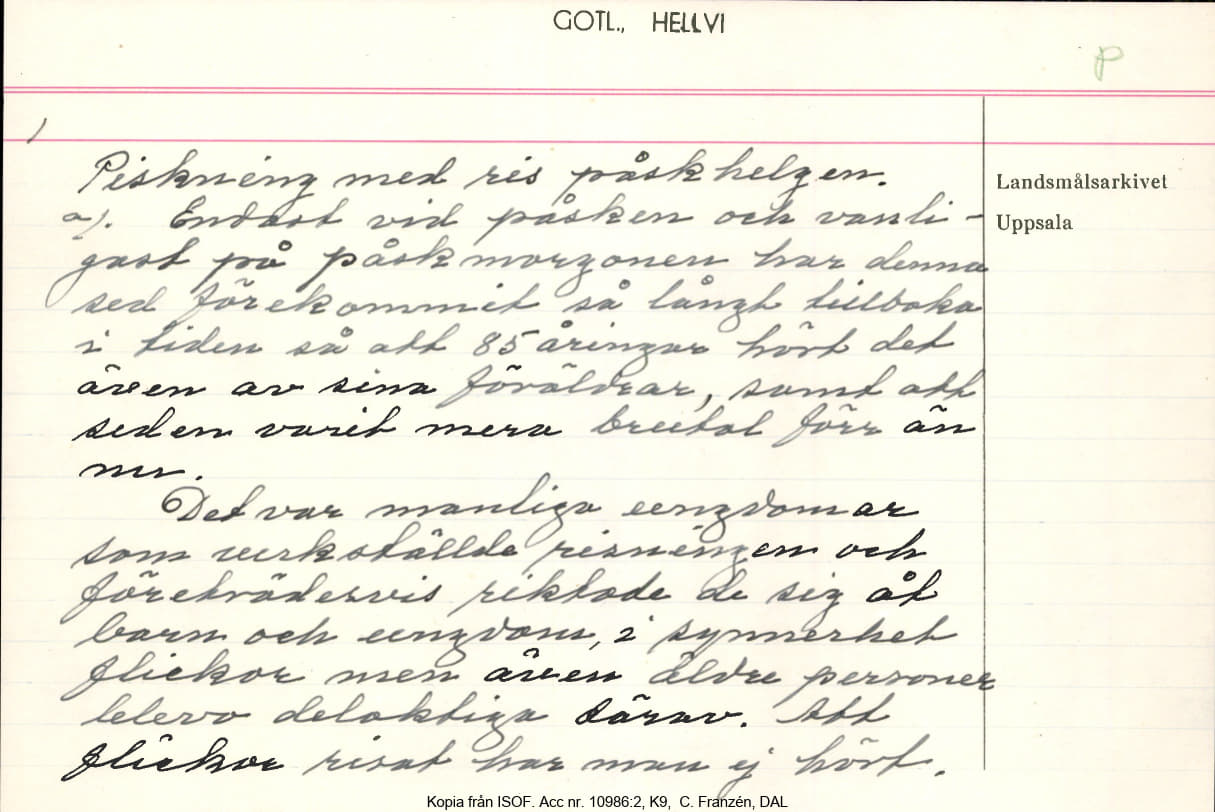 GOTL., HELLVI
P
1
Piskning med ris påskhelgen.
a). Endast vid påsken och vanli-
gast på påskmorgonen har denna
sed förekommit så långt tillbaka
i tiden så att 85 åringar hört det
även av sina föräldrar, samt att
seden varit mera brutal förr än
nu.
Det var manliga ungdomar
som verkställde risningen och
företrädesvis riktade de sig åt
barn och ungdom, i synnerhet
flickor men även äldre personer
blevo delaktiga därav. Att
flickor risat har man ej hört.
Landsmålsarkivet
Uppsala
Kopia från ISOF. Acc nr. 10986:2, K9, C. Franzén, DAL